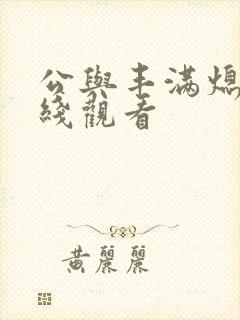 公與丰滿熄
綫觀看
黃麗麗